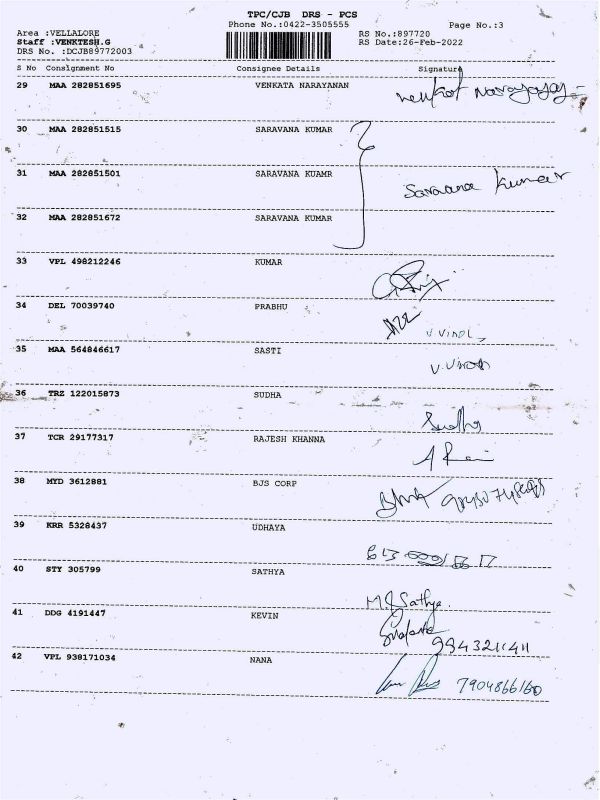 TPC/CJB DRS - PCS
Phone No.:0422-3505555 Page No.:3
Area :VELLALORE RS No.:897720
Staff :VENKTESH.G RS Date:26-Feb-2022
DRS No. :DCJB89772003
S No Consignment No Consignee Details Signature
29 MAA 282851695 VENKATA NARAYANAN
30 MAA 282851515 SARAVANA KUMAR
31 MAA 282851501 SARAVANA KUAMR Saravana Kumar
32 MAA 282851672 SARAVANA KUMAR
33 VPL 498212246 KUMAR
34 DEL 70039740 PRABHU
35 MAA 564846617 SASTI
36 TRZ 122015873 SUDHA Sudha
37 TCR 29177317 RAJESH KHANNA
38 MYD 3612881 BJS CORP
39 KRR 5328437 UDHAYA
40 STY 305799 SATHYA M.J Sathya.
41 DDG 4191447 KEVIN 9943211411
42 VPL 938171034 NANA 7904866160